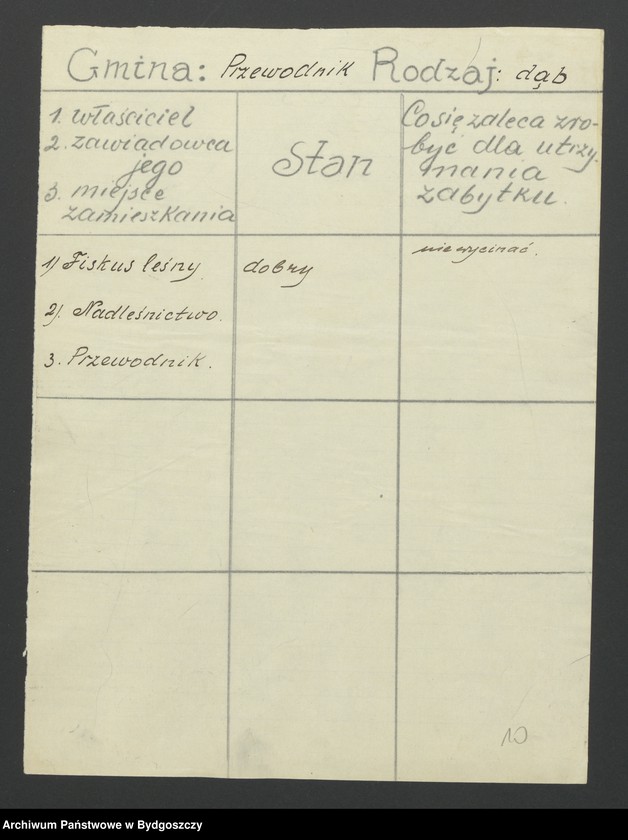 Gmina: Przewodnik Rodzaj: dąb
1. właściciel
2. zawiadowca
jego
3. miejsce
zamieszkania
Stan
Co się zaleca zro-
być dla utrzy-
mania
zabytku.
1) Fiskus leśny
dobry
nie wycinać.
2). Nadleśnictwo.
3. Przewodnik.
10
Archiwum Państwowe w Bydgoszczy